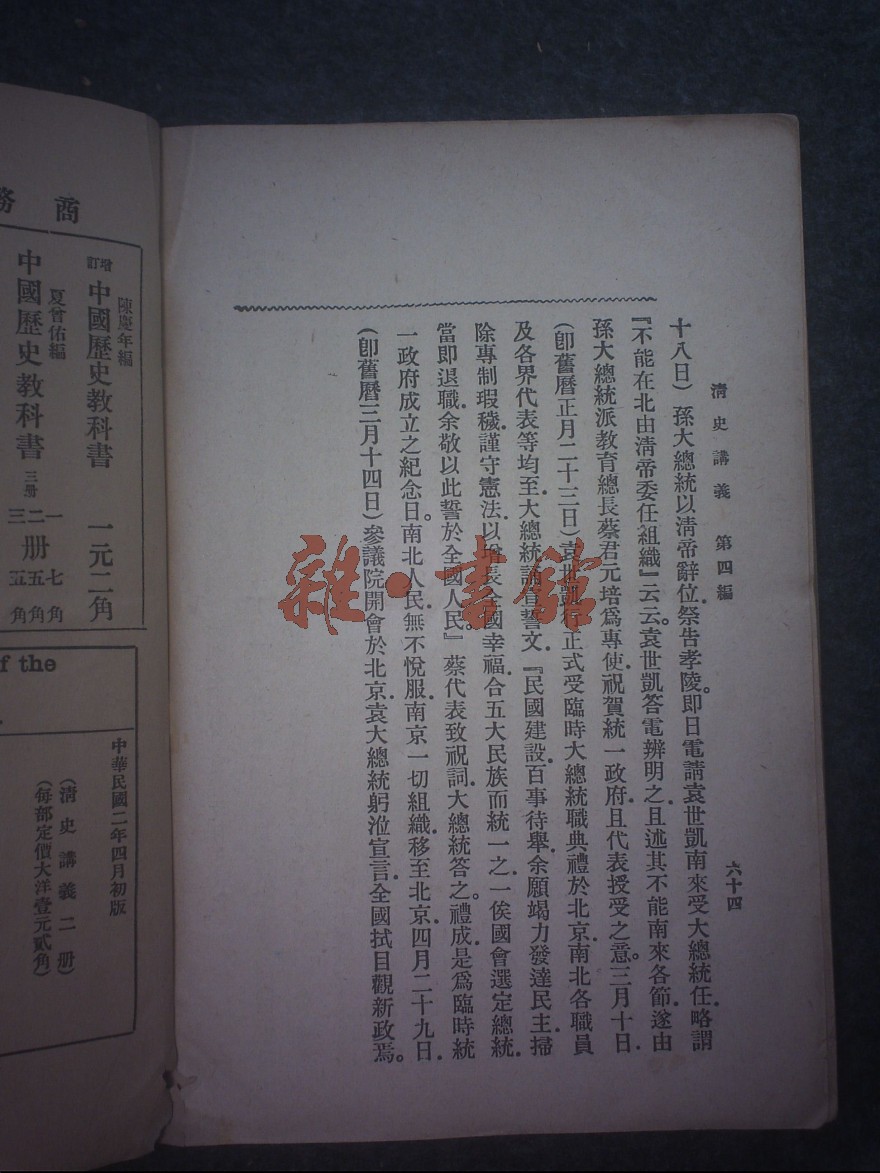 清史講義 第四編 六十四
十八日)孫大總統以清帝辭位.祭告孝陵。即日電請袁世凱南來受大總統任.略謂
『不能在北由清帝委任組織』云云。袁世凱答電辨明之.且述其不能南來各節.遂由
孫大總統派教育總長蔡君元培爲專使.祝賀統一政府.且代表授受之意。三月十日.
(即舊曆正月二十三日)袁世凱行正式受臨時大總統職典禮於北京.南北各職員
及各界代表等均至.大總統誦宣誓文.『民國建設.百事待舉.余願竭力發達民主.掃
除專制瑕穢.謹守憲法.以增長全國幸福.合五大民族而統一之.一俟國會選定總統.
當即退職.余敬以此誓於全國人民。』蔡代表致祝詞.大總統答之。禮成.是爲臨時統
一政府成立之紀念日。南北人民.無不悅服.南京一切組織.移至北京.四月二十九日.
(即舊曆三月十四日)參議院開會於北京.袁大總統躬涖宣言.全國拭目觀新政焉。
商務
陳慶年編
增訂 中國歷史教科書 一元二角
夏曾佑編
中國歷史教科書 三册
一 七角
二册五角
三 五角
f the
中華民國二年四月初版
(清史講義二册)
(每部定價大洋壹元貳角)
雜·書館